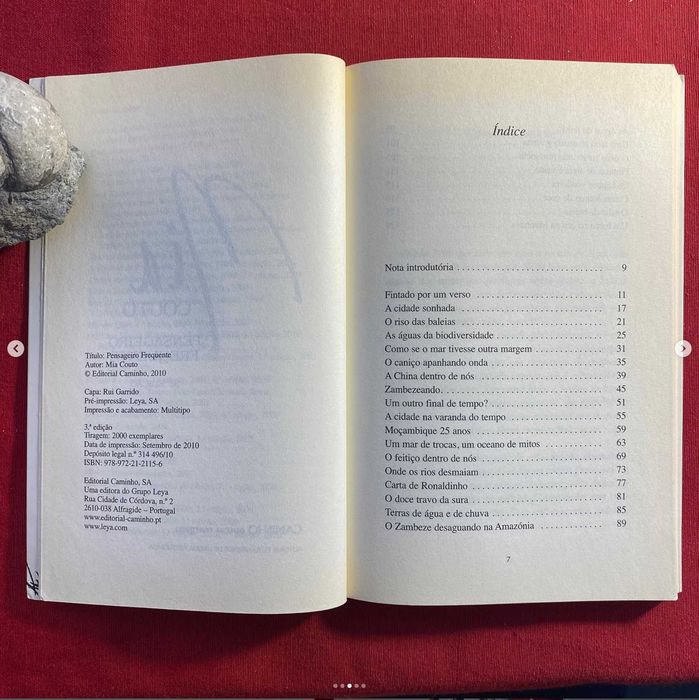 Título: Pensageiro Frequente
Autor: Mia Couto
© Editorial Caminho, 2010
Capa: Rui Garrido
Pré-impressão: Leya, SA
Impressão e acabamento: Multitipo
3.ª edição
Tiragem: 2000 exemplares
Data de impressão: Setembro de 2010
Depósito legal n.º 314 496/10
ISBN: 978-972-21-2115-6
Editorial Caminho, SA
Uma editora do Grupo Leya
Rua Cidade de Córdova, n.º 2
2610-038 Alfragide – Portugal
www.editorial-caminho.pt
www.leya.com
Índice
Nota introdutória . . . . . . . . . . . . . . . . . . . . . . . . . 9
Fintado por um verso . . . . . . . . . . . . . . . . . . . . . . 11
A cidade sonhada . . . . . . . . . . . . . . . . . . . . . . . . . 17
O riso das baleias . . . . . . . . . . . . . . . . . . . . . . . . . 21
As águas da biodiversidade . . . . . . . . . . . . . . . . . . 25
Como se o mar tivesse outra margem . . . . . . . . . . . 31
O caniço apanhando onda . . . . . . . . . . . . . . . . . . . 35
A China dentro de nós . . . . . . . . . . . . . . . . . . . . . 39
Zambezeando. . . . . . . . . . . . . . . . . . . . . . . . . . . . 45
Um outro final de tempo? . . . . . . . . . . . . . . . . . . . 51
A cidade na varanda do tempo . . . . . . . . . . . . . . . . 55
Moçambique 25 anos . . . . . . . . . . . . . . . . . . . . . . 59
Um mar de trocas, um oceano de mitos . . . . . . . . . . 63
O feitiço dentro de nós . . . . . . . . . . . . . . . . . . . . . 69
Onde os rios desmaiam . . . . . . . . . . . . . . . . . . . . . 73
Carta de Ronaldinho . . . . . . . . . . . . . . . . . . . . . . . 77
O doce travo da sura . . . . . . . . . . . . . . . . . . . . . . . 81
Terras de água e de chuva . . . . . . . . . . . . . . . . . . . 85
O Zambeze desaguando na Amazónia . . . . . . . . . . . 89
7